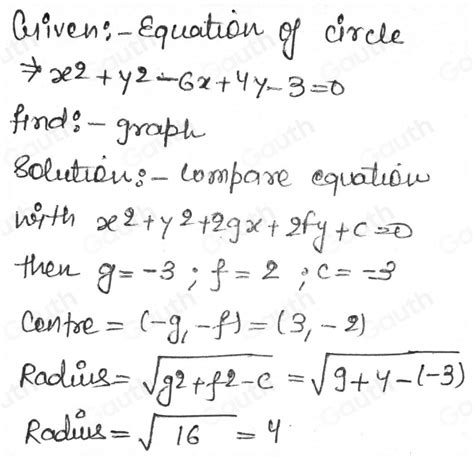 Given:- Equation of circle
⇒ x2 + y2 - 6x + 4y - 3 = 0
find:- graph
Solution:- Compare equation
with x2 + y2 + 2gx + 2fy + c = 0
then g = -3 ; f = 2 ; c = -3
Centre = (-g, -f) = (3, -2)
Radius = √g2 + f2 - c = √9 + 4 - (-3)
Radius = √16 = 4